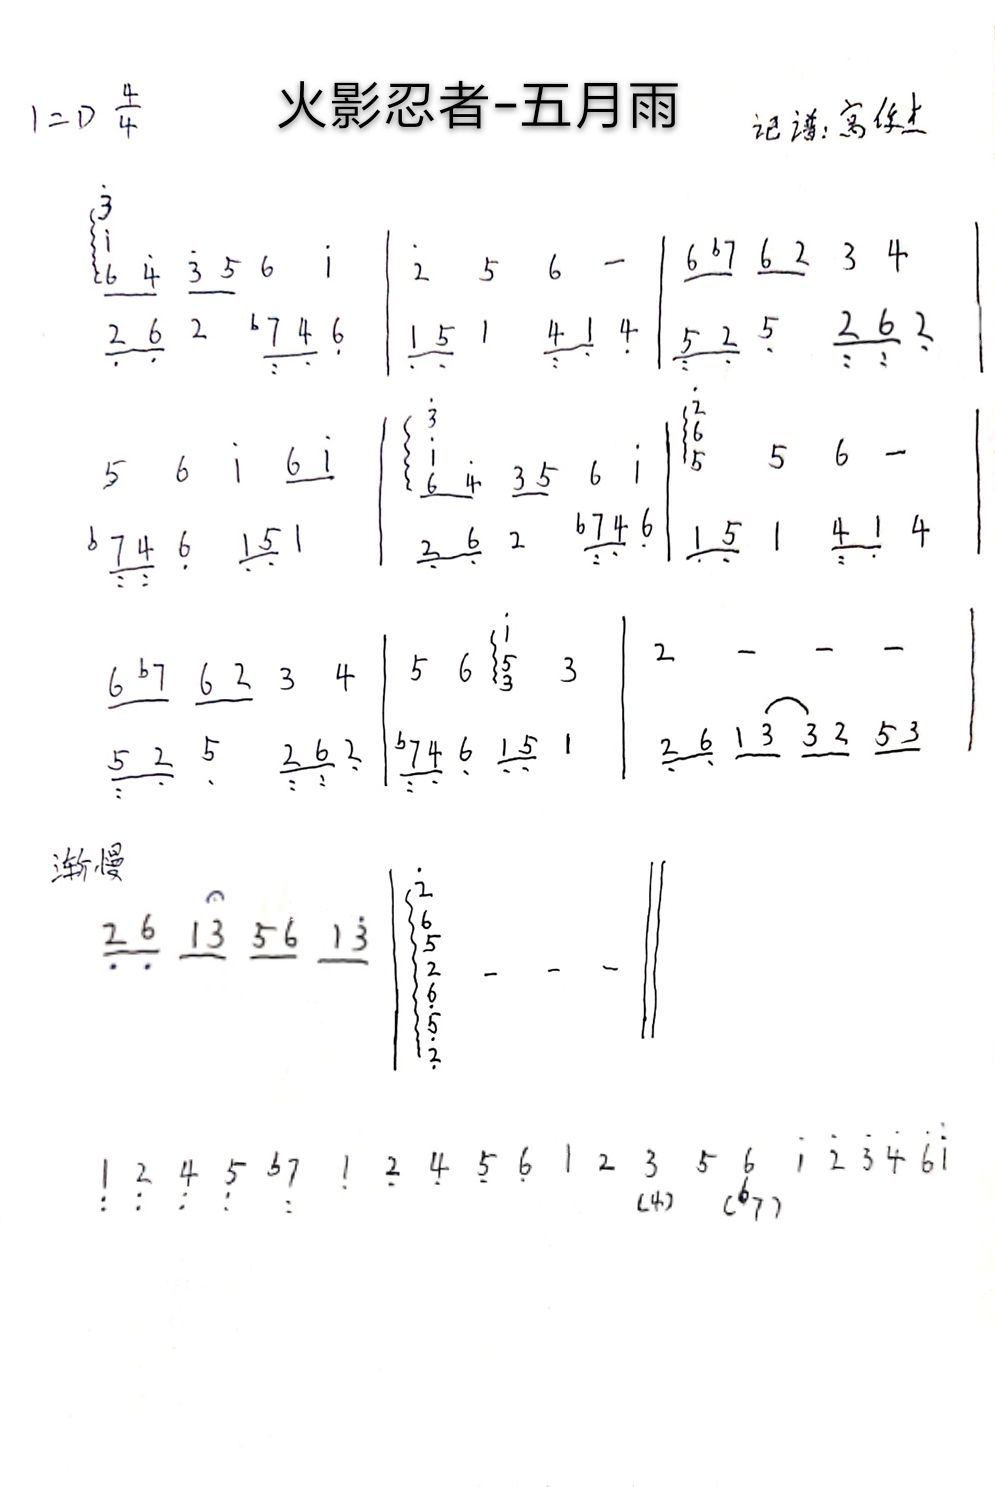 1=D 4/4 火影忍者-五月雨 记谱:高俊杰
3̇
1̇
6 4̇ 3̇ 5 6 1̇ | 2̇ 5 6 — | 6 ♭7 6 2 3 4 |
2̣ 6̣ 2 ♭7̤ 4̤ 6̣ | 1̣ 5̣ 1 4̤ 1̣ 4̣ | 5̤ 2̣ 5̣ 2̤ 6̤ 2̣ |
3̇ 2̇
1̇ 6
5 6 1̇ 6 1̇ | 6 4̇ 3 5 6 1̇ | 5 5 6 —
♭7̤ 4̤ 6̣ 1̣ 5̣ 1 | 2̣ 6̣ 2 ♭7̤ 4̤ 6̣ | 1̣ 5̣ 1 4̤ 1̣ 4
1̇
5
6 ♭7 6 2 3 4 | 5 6 3 3 | 2 — — — |
5̤ 2̣ 5̣ 2̤ 6̤ 2̣ | ♭7̤ 4̤ 6̣ 1̣ 5̣ 1 | 2̣ 6̣ 1 3 3 2 5 3 |
渐慢
2̣ 6̣ 1 3 5 6 1̇ 3̇ |
2̇
6
5
2 — — — ||
6̣
5̣
2̣
1̤ 2̤ 4̤ 5̤ ♭7̤ 1̣ 2̣ 4̣ 5̣ 6̣ 1 2 3 5 6 1̇ 2̇ 3̇ 4̇ 6̇ 1̇
(4) (♭7)